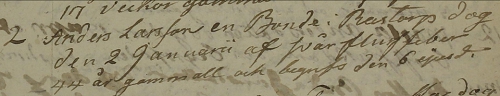 17 veckor gammal
2 Anders Larsson en Bonde i Rastorp dog
den 2 Januarii af svår fluss feber
44 år gammall och begrofs den 6 ejusd.